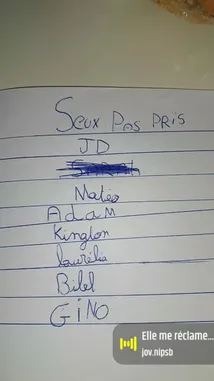 Seux Pas PRis
JD
Matéo
Adam
Kington
laurélia
Bilel
GiNO
Elle me réclame...
jov.nipsb